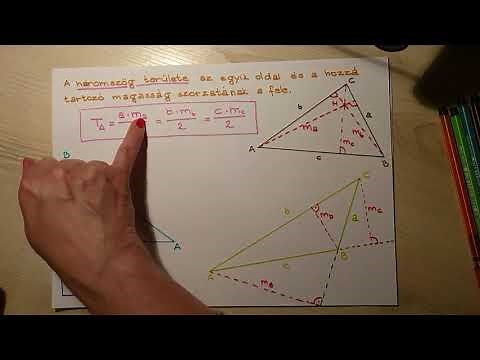 A háromszög területe az egyik oldal és a hozzá
tartozó magasság szorzatának a fele.
T△ = a·mₐ/2 = b·m_b/2 = c·m_c/2
C
b
M
a
mₐ
m_b
m_c
A
c
B
B
A
C
b
m_b
a
m_c
A
c
B
mₐ